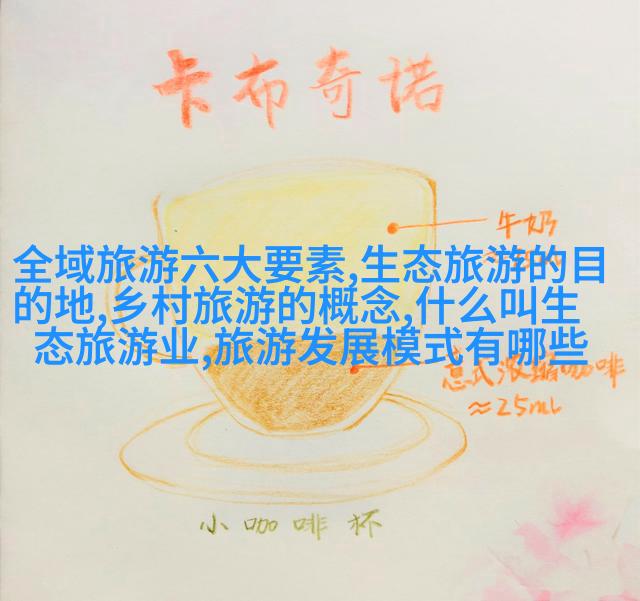 卡布奇诺
牛奶
全域旅游六大要素,生态旅游的目
的地,乡村旅游的概念,什么叫生
态旅游业,旅游发展模式有哪些
意式浓缩咖啡
≈25ml
小咖啡杯